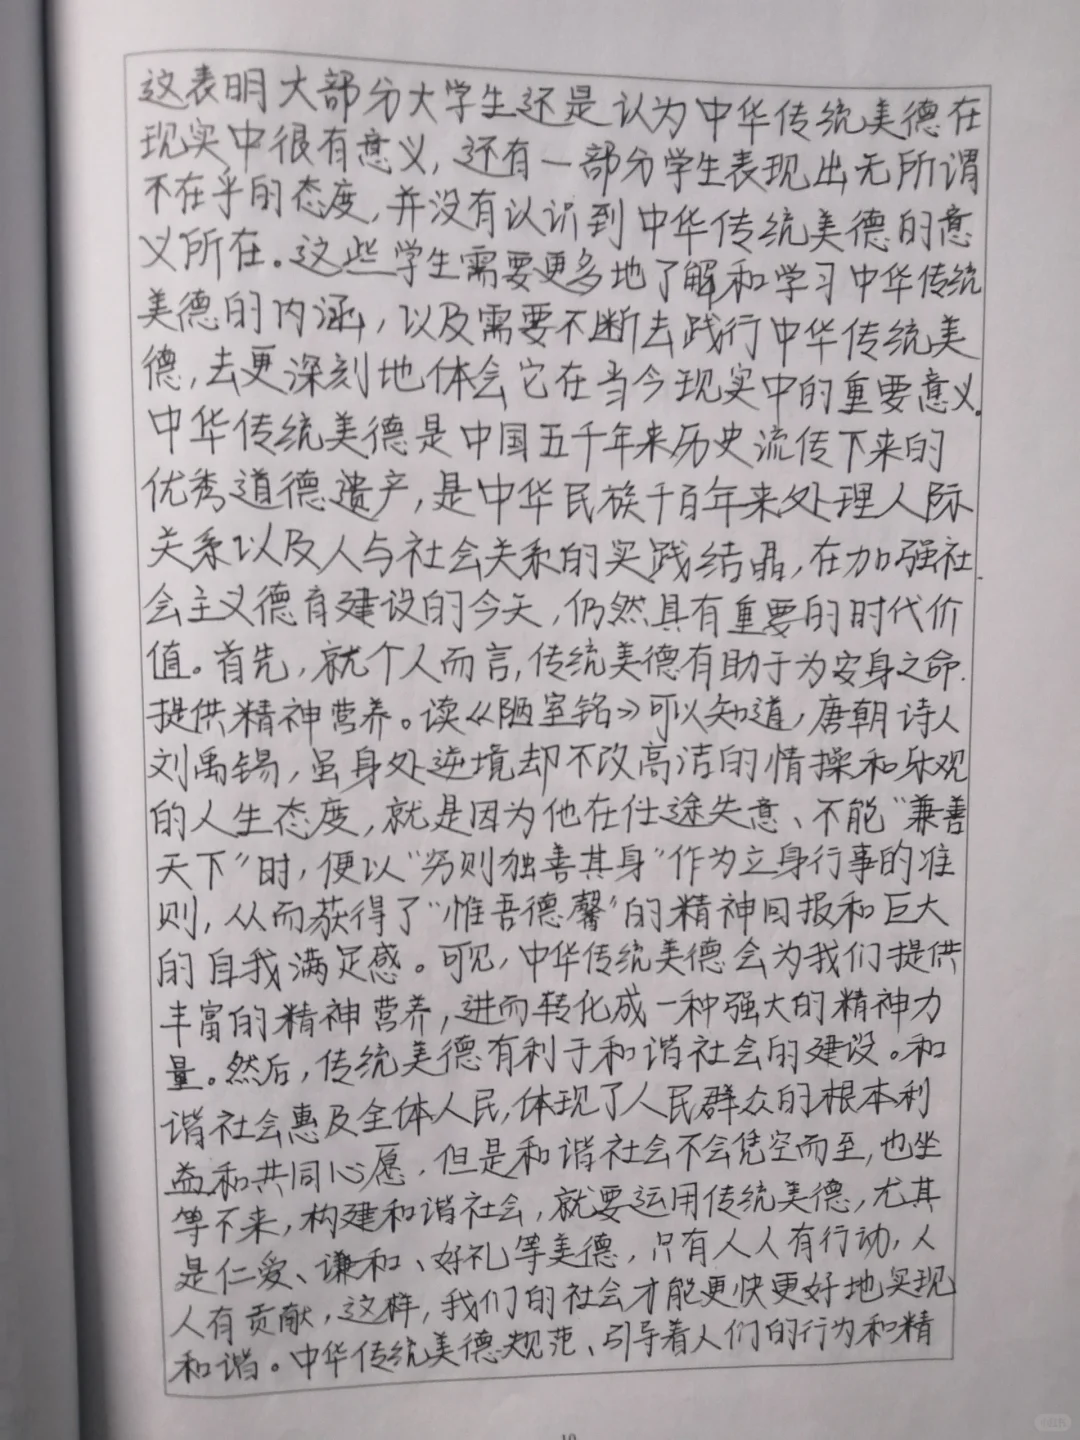 这表明大部分大学生还是认为中华传统美德在
现实中很有意义，还有一部分学生表现出无所谓
不在乎的态度，并没有认识到中华传统美德的意
义所在。这些学生需要更多地了解和学习中华传统
美德的内涵，以及需要不断去践行中华传统美
德，去更深刻地体会它在当今现实中的重要意义。
中华传统美德是中国五千年来历史流传下来的
优秀道德遗产，是中华民族千百年来处理人际
关系以及人与社会关系的实践结晶，在加强社
会主义德育建设的今天，仍然具有重要的时代价
值。首先，就个人而言，传统美德有助于为安身之命
提供精神营养。读《陋室铭》可以知道，唐朝诗人
刘禹锡，虽身处逆境却不改高洁的情操和乐观
的人生态度，就是因为他在仕途失意、不能“兼善
天下”时，便以“穷则独善其身”作为立身行事的准
则，从而获得了“惟吾德馨”的精神回报和巨大
的自我满足感。可见，中华传统美德会为我们提供
丰富的精神营养，进而转化成一种强大的精神力
量。然后，传统美德有利于和谐社会的建设。和
谐社会惠及全体人民，体现了人民群众的根本利
益和共同心愿，但是和谐社会不会凭空而至，也坐
等不来，构建和谐社会，就要运用传统美德，尤其
是仁爱、谦和、好礼等美德，只有人人有行动，人
人有贡献，这样，我们的社会才能更快更好地实现
和谐。中华传统美德规范、引导着人们的行为和精
10